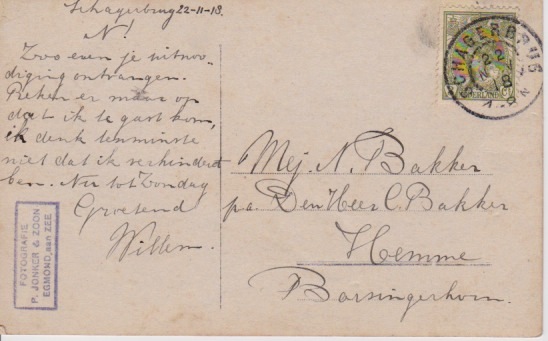 Schagerbrug 22-11-18.
N!
Zoo even je uitnoo-
diging ontvangen.
Reken er maar op
dat ik te gast kom,
ik denk tenminste
niet dat ik verhinderd
ben. Nu tot Zondag
Groetend
Willem.
FOTOGRAFIE
P. JONKER & ZOON
EGMOND, aan ZEE
SCHAGERBRUG
22
18
NEDERLAND
Mej. N. Bakker
p/a. Den Heer C. Bakker
Hemme
Barsingerhorn.